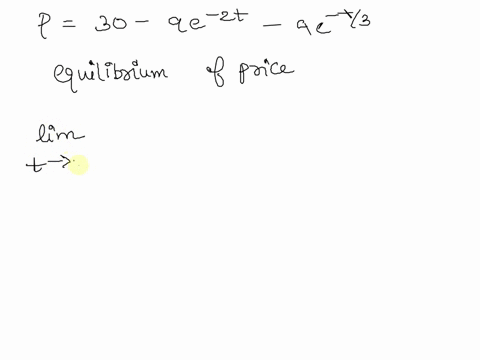 P = 30 - 9e^{-2t} - 9e^{-t/3}
equilibrium of price
lim
t →